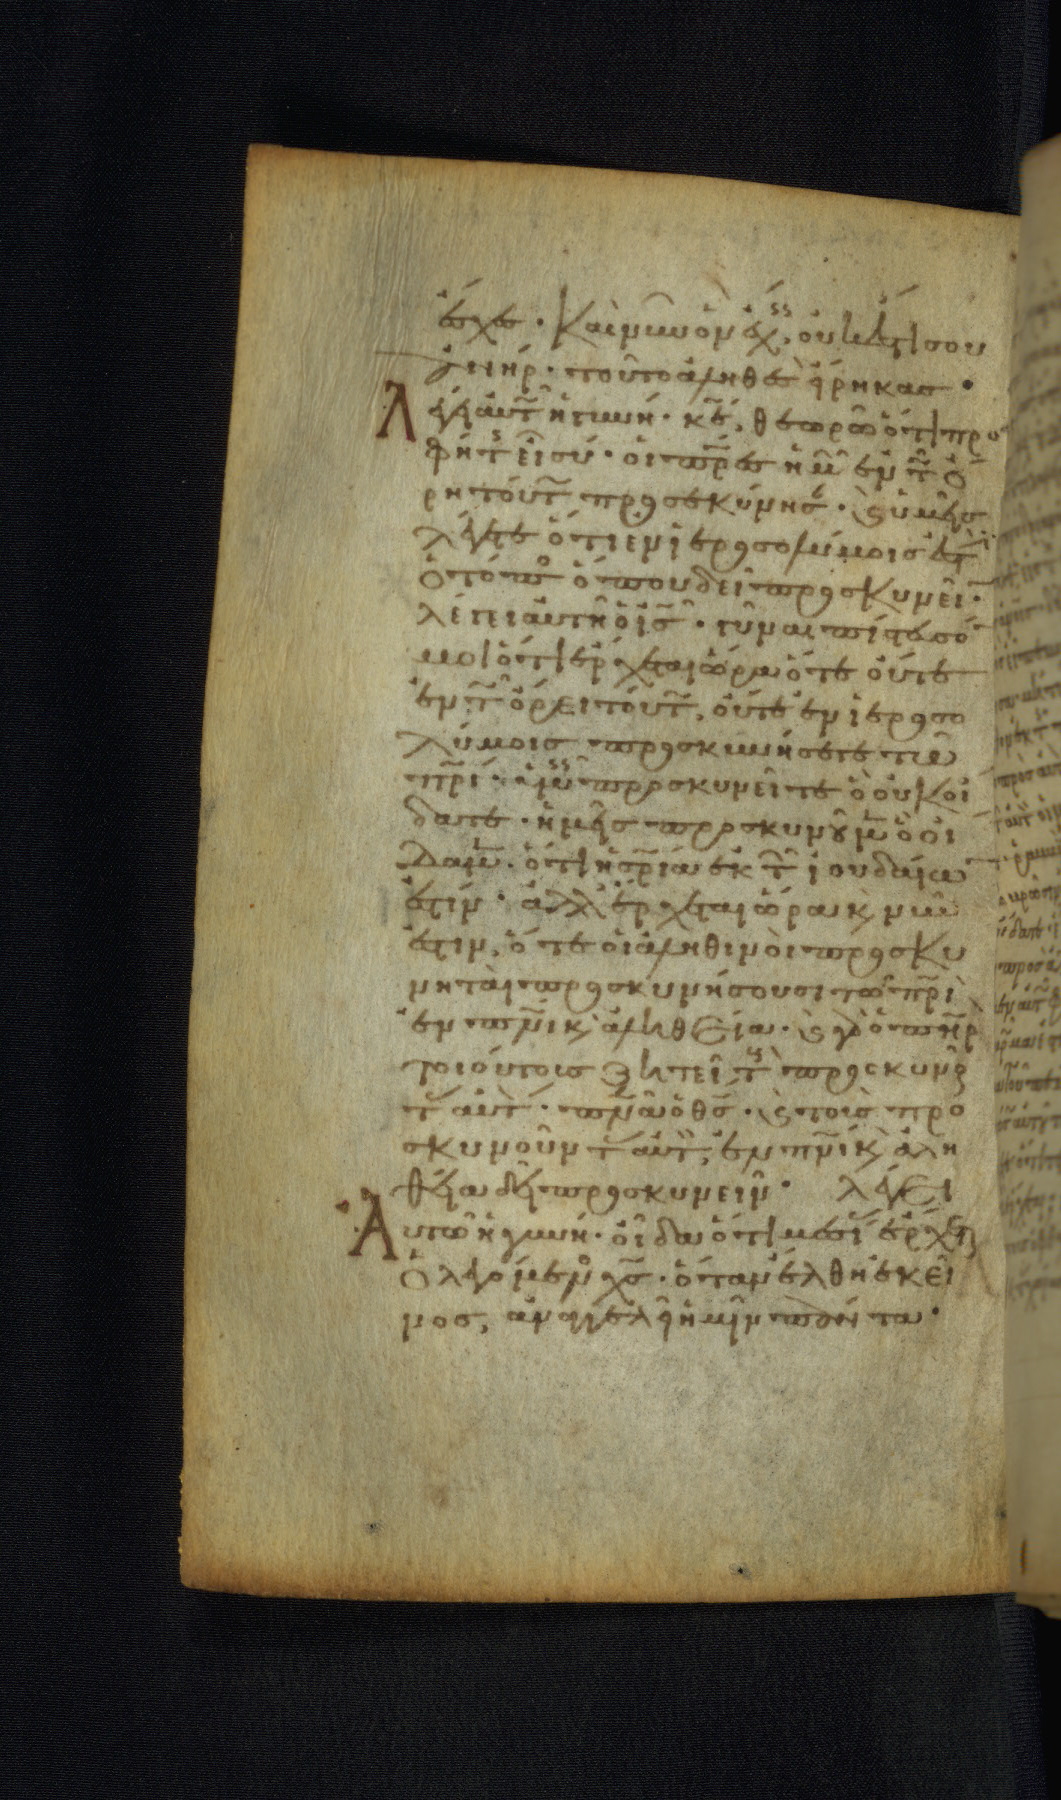 ἔσχες· καὶ νῦν ὃν ἔχεις, οὐκ ἔστι σου
ἀνήρ· τοῦτο ἀληθὲς εἴρηκας·
Λέγει αὐτῶ ἡ γυνή· κε, θεωρῶ ὅτι προ
φήτης εἶ σύ· οἱ πρες ἡμῶν ἐν τῶ ὄ
ρη τούτω προσεκύνησαν· καὶ ὑμεῖς
λέγετε ὅτι ἐν ἱεροσολύμοις ἐστὶν
ὁ τόπος ὅπου δεῖ προσκυνεῖν·
λέγει αὐτῆ ὁ ις· γύναι πίστευσόν
μοι ὅτι ἔρχεται ὥρα ὅτε οὔτε
ἐν τῶ ὄρει τούτω, οὔτε ἐν ἱεροσο
λύμοις προσκυνήσετε τῶ
πρι· ὑμεῖς προσκυνεῖτε ὃ οὐκ οἴ
δατε· ἡμεῖς προσκυνοῦμεν ὃ οἴ
δαμεν· ὅτι ἡ σρια ἐκ τῶν ἰουδαίων
ἐστίν· ἀλλ' ἔρχεται ὥρα καὶ νῦν
ἐστιν, ὅτε οἱ ἀληθινοὶ προσκυ
νηταὶ προσκυνήσουσι τῶ πρι
ἐν πνι καὶ ἀληθεία· καὶ γὰρ ὁ πηρ
τοιούτους ζητεῖ τοὺς προσκυνοῦν
τας αὐτόν· πνα ὁ θς· καὶ τοὺς προ
σκυνοῦντας αὐτόν, ἐν πνι καὶ ἀλη
θεία δεῖ προσκυνεῖν· λέγει
Αὐτῶ ἡ γυνή· οἶδα ὅτι μεσίας ἔρχεται
ὁ λεγόμενος χς· ὅταν ἔλθη ἐκεῖ
νος, ἀναγγελεῖ ἡμῖν πάντα·